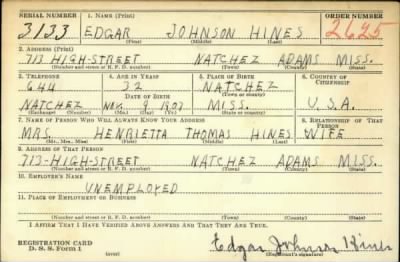 SERIAL NUMBER 1. NAME (Print) ORDER NUMBER
3133 EDGAR JOHNSON HINES 2625
(First) (Middle) (Last)
2. ADDRESS (Print)
713 HIGH-STREET NATCHEZ ADAMS MISS.
(Number and street or R. F. D. number) (Town) (County) (State)
3. TELEPHONE 4. AGE IN YEARS 5. PLACE OF BIRTH 6. COUNTRY OF CITIZENSHIP
644 32 NATCHEZ
DATE OF BIRTH (Town or county)
NATCHEZ NOV. 9 1907 MISS. U.S.A.
(Exchange) (Number) (Mo.) (Day) (Yr.) (State or country)
7. NAME OF PERSON WHO WILL ALWAYS KNOW YOUR ADDRESS 8. RELATIONSHIP OF THAT PERSON
MRS. HENRIETTA THOMAS HINES WIFE
(Mr., Mrs., Miss) (First) (Middle) (Last)
9. ADDRESS OF THAT PERSON
713-HIGH-STREET NATCHEZ ADAMS MISS.
(Number and street or R. F. D. number) (Town) (County) (State)
10. EMPLOYER'S NAME
UNEMPLOYED
11. PLACE OF EMPLOYMENT OR BUSINESS
(Number and street or R. F. D. number) (Town) (County) (State)
I AFFIRM THAT I HAVE VERIFIED ABOVE ANSWERS AND THAT THEY ARE TRUE.
REGISTRATION CARD Edgar Johnson Hines
D. S. S. Form 1 (over) (Registrant's signature)